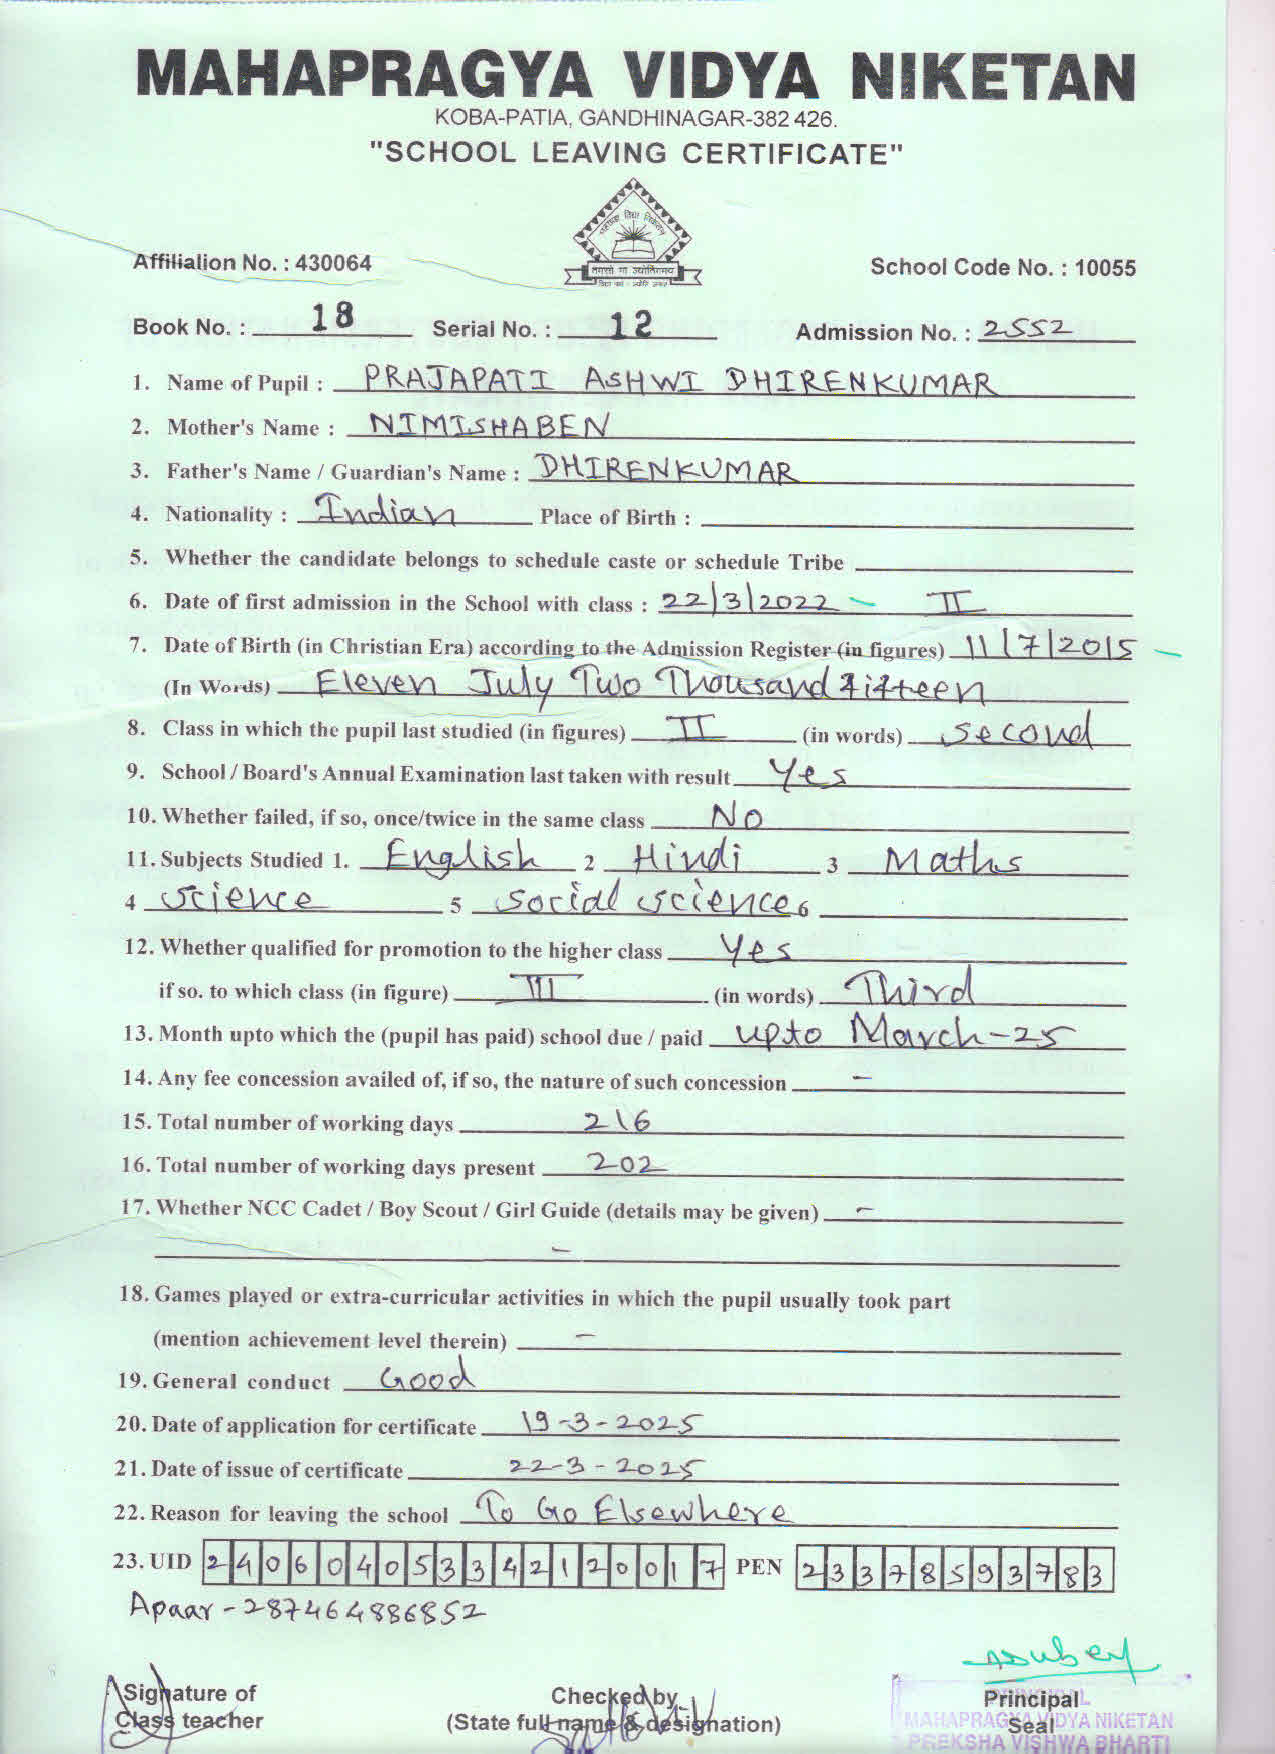 MAHAPRAGYA VIDYA NIKETAN
KOBA-PATIA, GANDHINAGAR-382 426.
"SCHOOL LEAVING CERTIFICATE"
महाप्रज्ञ विद्या निकेतन
तमसो मा ज्योतिर्गमय
Affilialion No. : 430064
School Code No. : 10055
Book No. : 18 Serial No. : 12 Admission No. : 2552
1. Name of Pupil : PRAJAPATI ASHWI DHIRENKUMAR
2. Mother's Name : NIMISHABEN
3. Father's Name / Guardian's Name : DHIRENKUMAR
4. Nationality : Indian Place of Birth :
5. Whether the candidate belongs to schedule caste or schedule Tribe
6. Date of first admission in the School with class : 22/3/2022 - II
7. Date of Birth (in Christian Era) according to the Admission Register (in figures) 11/7/2015
(In Words) Eleven July Two Thousand Fifteen
8. Class in which the pupil last studied (in figures) II (in words) Second
9. School / Board's Annual Examination last taken with result Yes
10. Whether failed, if so, once/twice in the same class No
11. Subjects Studied 1. English 2 Hindi 3 Maths
4 Science 5 Social Science 6
12. Whether qualified for promotion to the higher class Yes
if so. to which class (in figure) III (in words) Third
13. Month upto which the (pupil has paid) school due / paid upto March-25
14. Any fee concession availed of, if so, the nature of such concession -
15. Total number of working days 216
16. Total number of working days present 202
17. Whether NCC Cadet / Boy Scout / Girl Guide (details may be given) -
-
18. Games played or extra-curricular activities in which the pupil usually took part
(mention achievement level therein) -
19. General conduct Good
20. Date of application for certificate 19-3-2025
21. Date of issue of certificate 22-3-2025
22. Reason for leaving the school To Go Elsewhere
23. UID 240604053342120017 PEN 23378593783
Apaar - 287464886852
Signature of
Class teacher
Checked by
(State full name & designation)
Principal
Seal
PRINCIPAL
MAHAPRAGYA VIDYA NIKETAN
PREKSHA VISHWA BHARTI